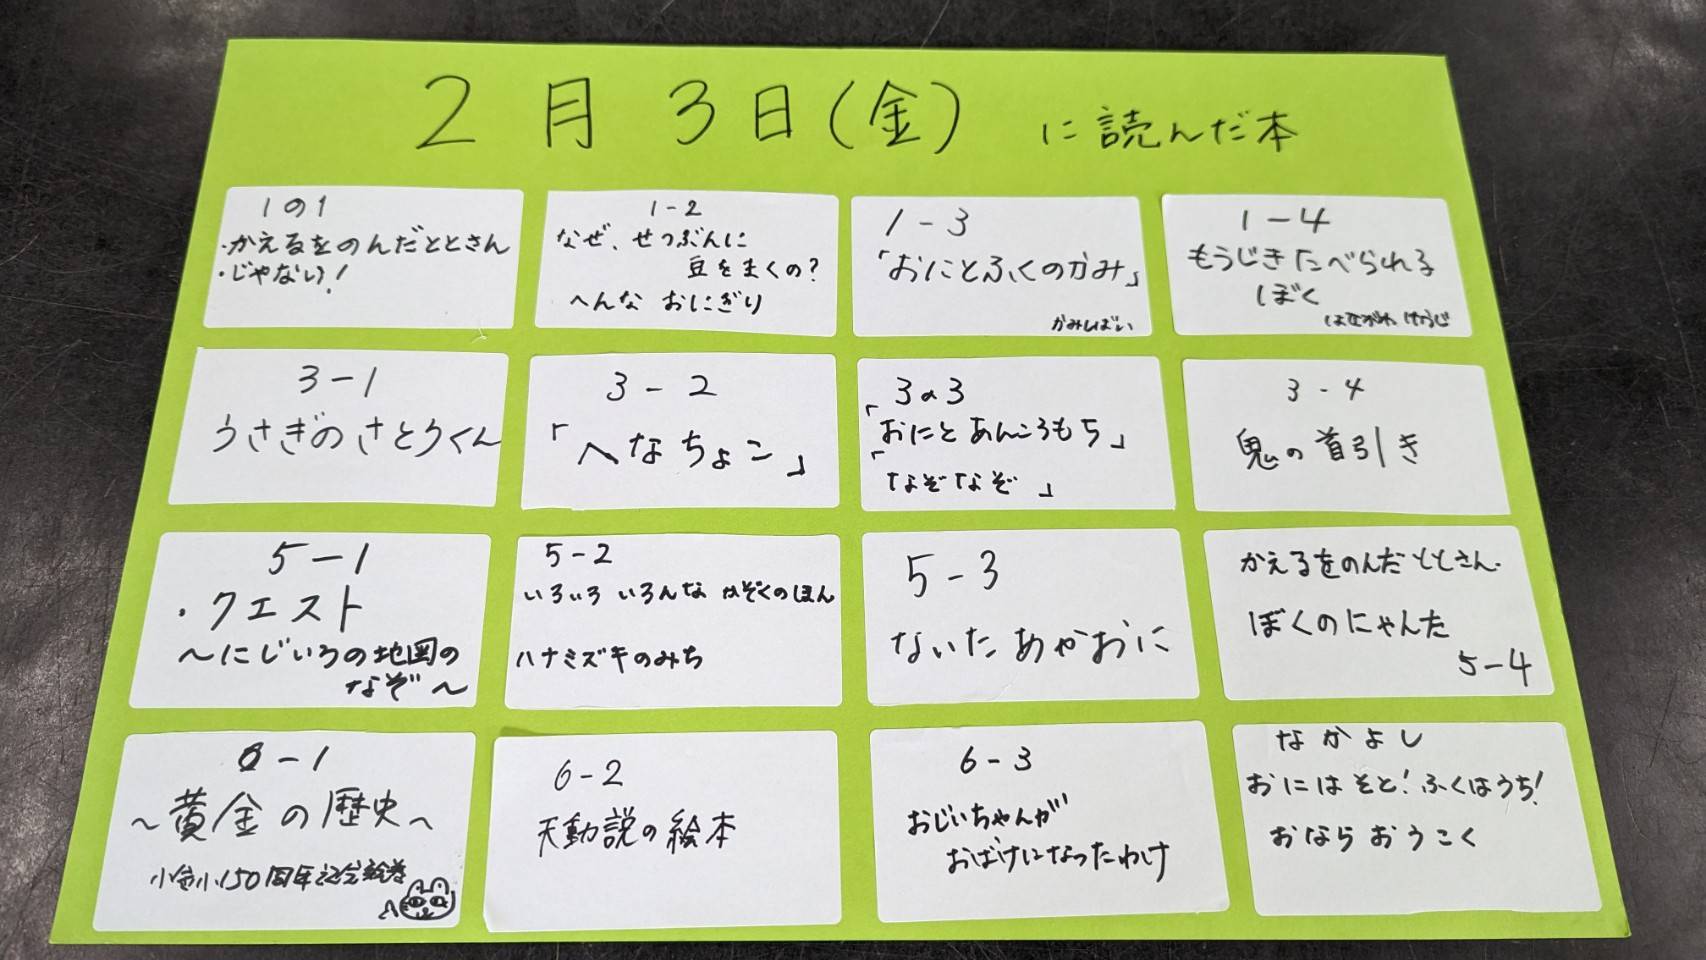 2月3日(金) に読んだ本
1の1
・かえるをのんだととさん
・じゃない!
1-2
なぜ、せつぶんに
豆をまくの?
へんな おにぎり
1-3
「おにとふくのかみ」
かみしばい
1-4
もうじきたべられる
ぼく
はせがわ ゆうじ
3-1
うさぎのさとりくん
3-2
「へなちょこ」
3の3
「おにとあんころもち」
「なぞなぞ」
3-4
鬼の首引き
5-1
・クエスト
~にじいろの地図の
なぞ~
5-2
いろいろ いろんな かぞくのほん
ハナミズキのみち
5-3
ないた あかおに
かえるをのんだ ととさん.
ぼくのにゃんた
5-4
6-1
~黄金の歴史~
小金小150周年記念絵巻
6-2
天動説の絵本
6-3
おじいちゃんが
おばけになったわけ
なかよし
おにはそと!ふくはうち!
おなら おうこく